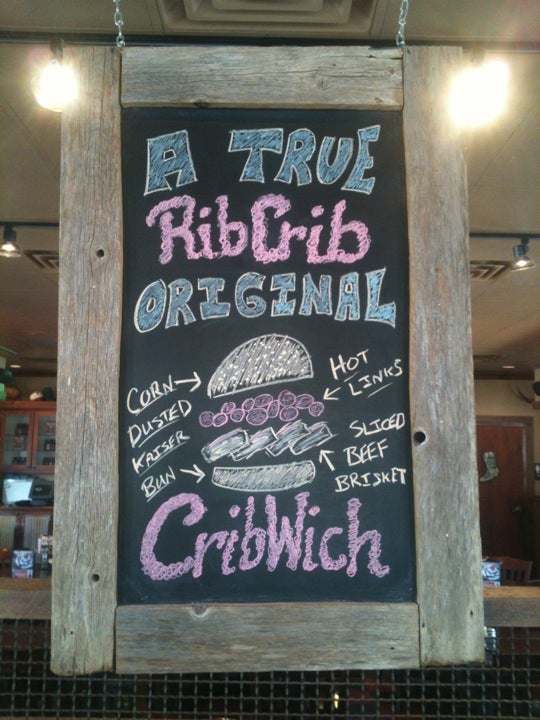 A TRUE
RibCrib
ORIGINAL
CORN
DUSTED
KAISER
BUN
HOT
LINKS
SLICED
BEEF
BRISKET
CribWich